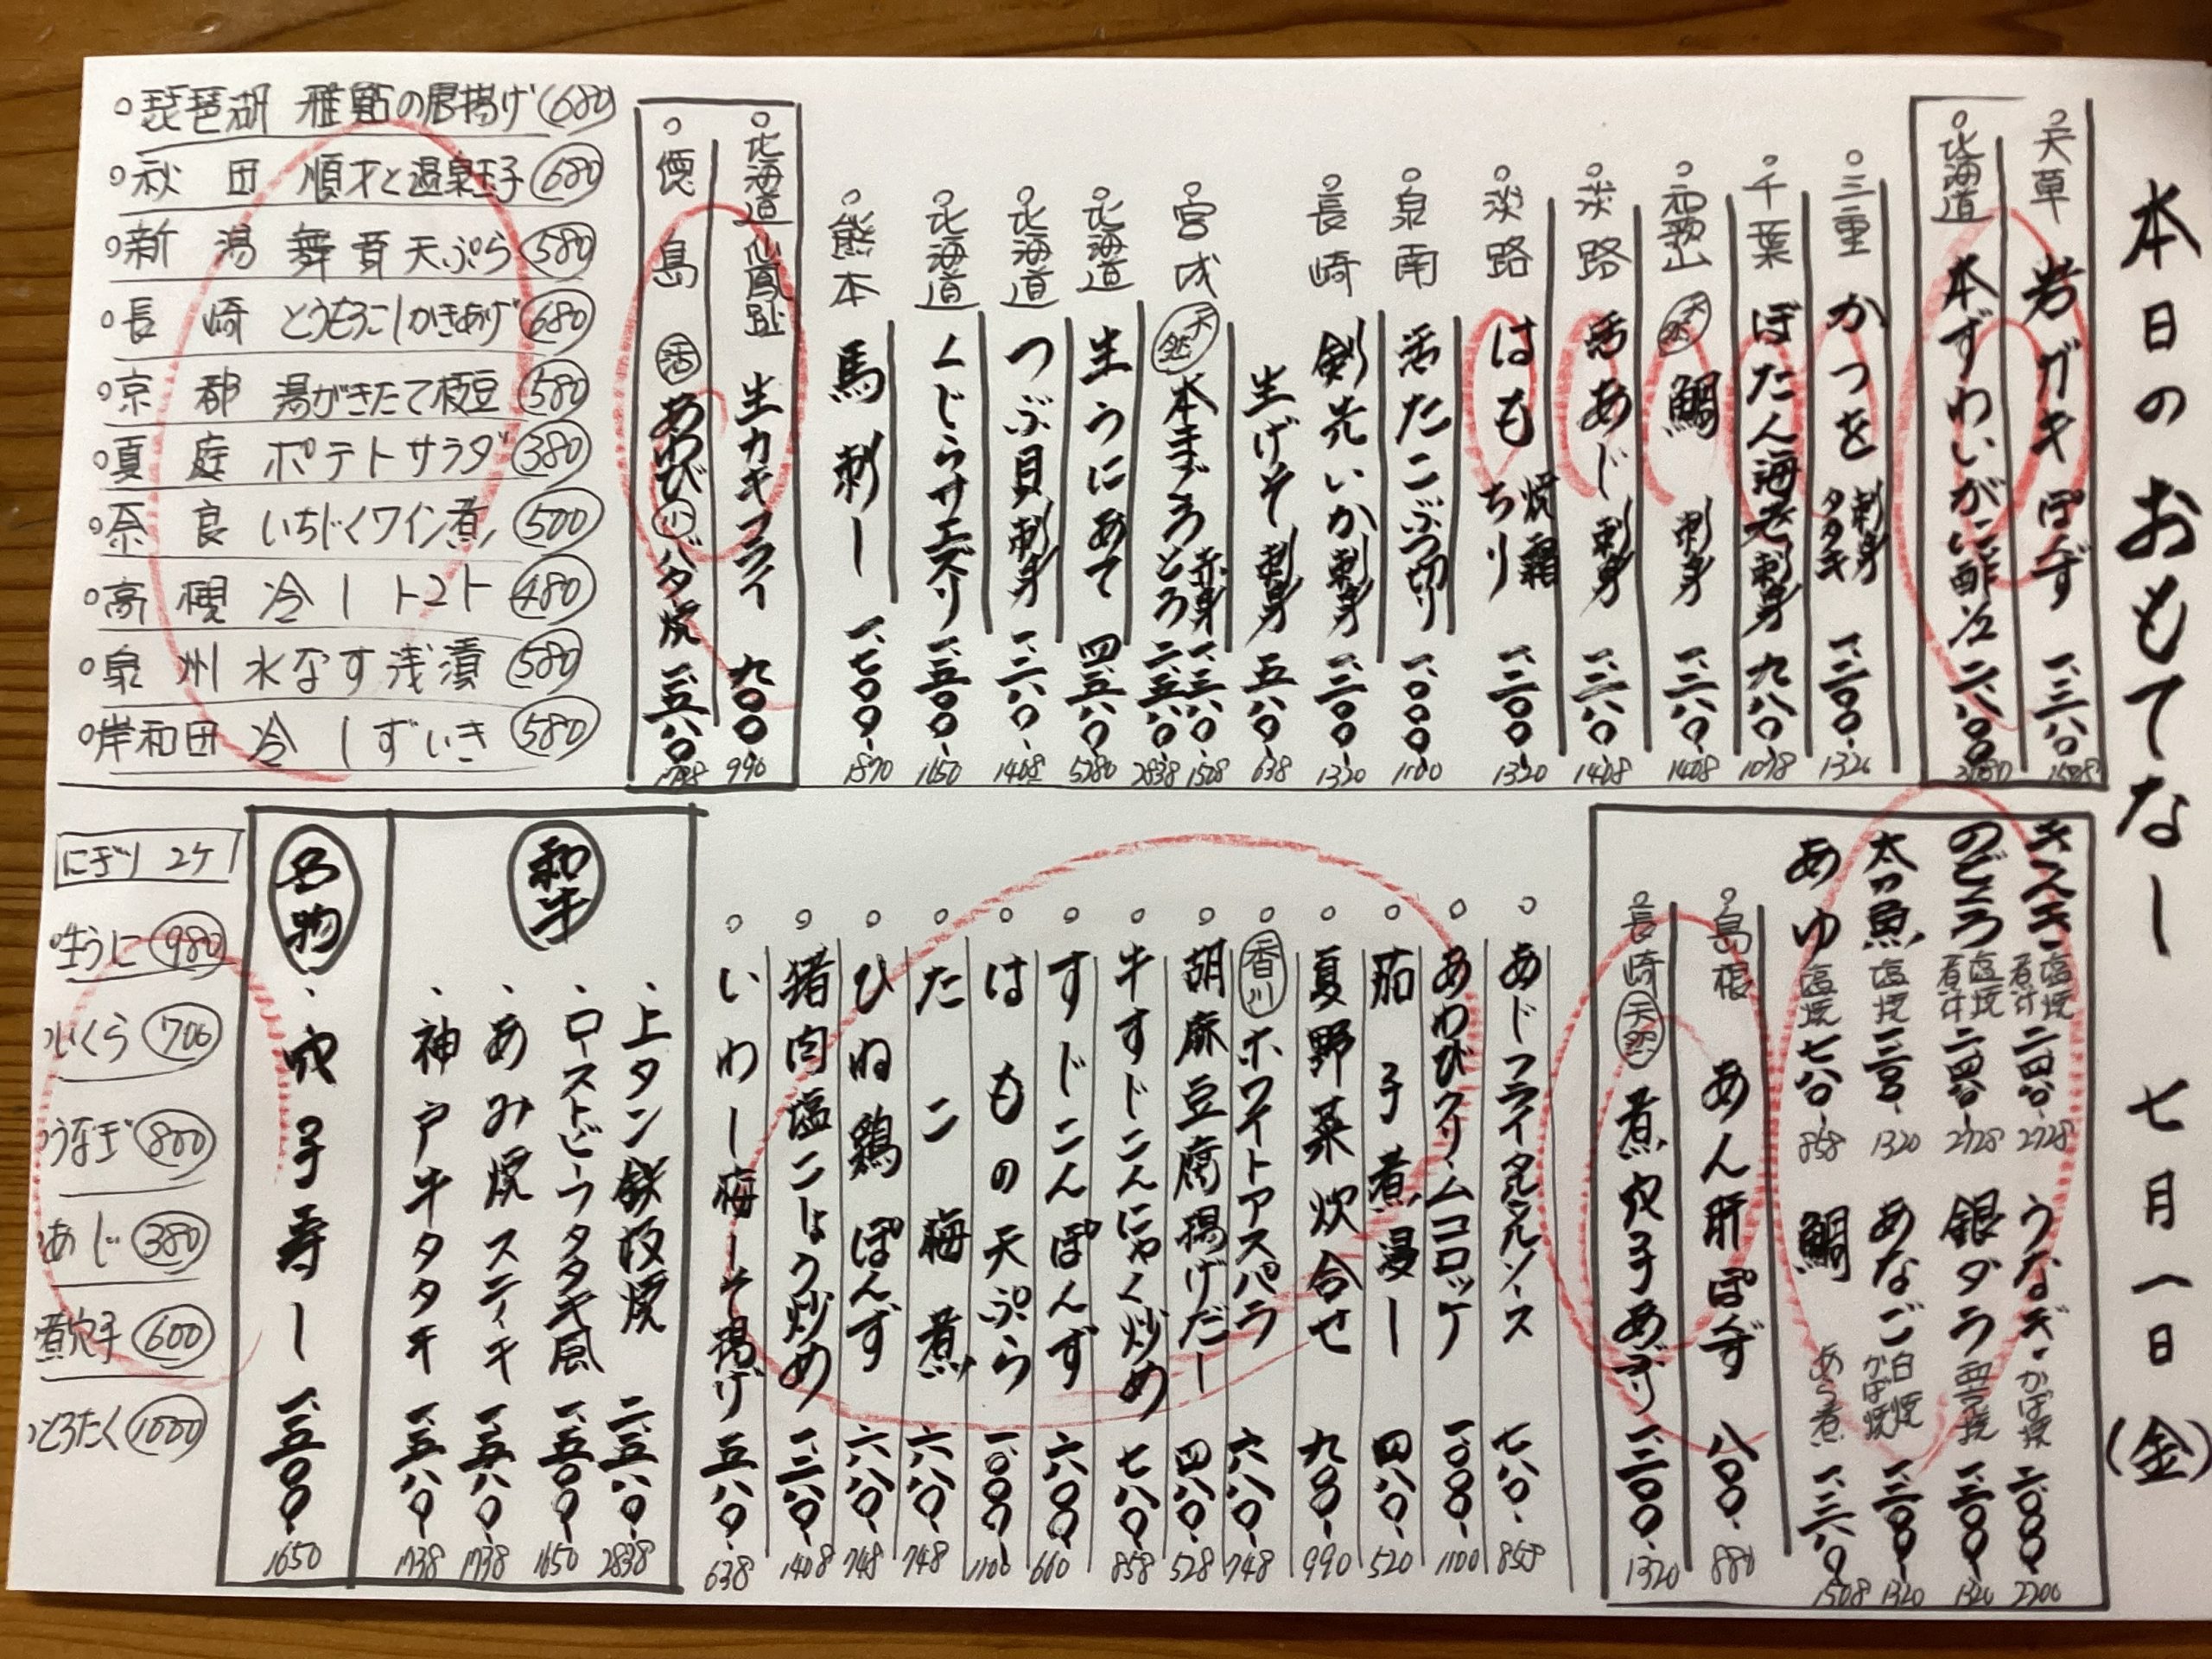 本日のおもてなし 七月一日(金)
天草 岩ガキぽんず 一、三八〇 1508
北海道 本ずわいがに酢
三重 かつを 刺身 タタキ 一、二〇〇 1320
千葉 ぼたん海老刺身 九八〇 1078
和歌山 天然 鯛 刺身 一、二八〇 1408
淡路 活あじ 刺身 一、二八〇 1408
淡路 はも 焼霜 ちり 一、二〇〇 1320
泉南 活たこぶつ切り 一、〇〇〇 1100
長崎 剣先いか刺身 一、二〇〇 1320
生げそ刺身 五八〇 638
宮城 天然 本まぐろ 赤身 1508 とろ 二、五八〇 2838
北海道 生うにあて 四、八〇〇 5280
北海道 つぶ貝刺身 一、二八〇 1408
北海道 くじらサエズリ 一、五〇〇 1650
熊本 馬刺し 一、七〇〇 1870
北海道 仙鳳趾 生カキフライ 九〇〇 990
徳島 活 あわび バター焼 一、五八〇 1738
琵琶湖 稚鮎の唐揚げ 680
秋田 順才と温泉玉子 680
新潟 舞茸天ぷら 580
長崎 とうもろこしかきあげ 680
京都 湯がきたて枝豆 580
夏庭 ポテトサラダ 380
奈良 いちじくワイン煮 500
高槻 冷しトマト 480
泉州 水なす浅漬 580
岸和田 冷しずいき 580
キンキ 塩焼 煮汁 二、四八〇 2728
のどぐろ 塩焼 煮汁 二、四八〇 2728
太刀魚 塩焼 一、二〇〇 1320
あゆ 塩焼 七八〇 858
うなぎ かば焼 二、〇〇〇 2200
銀ダラ 西京焼 一、二〇〇 1320
あなご 白焼 かば焼 一、二〇〇 1320
鯛 あら煮 一、三八〇 1508
島根 あん肝ぽんず 八〇〇 880
長崎 天然 煮穴子あぶり 一、二〇〇 1320
あじフライタルタルソース 七八〇 858
あわびクリームコロッケ 一、〇〇〇 1100
茄子煮浸し 四八〇 520
夏野菜炊合せ 九〇〇 990
香川 ホワイトアスパラ 六八〇 748
胡麻豆腐揚げだし 四八〇 528
牛すじこんにゃく炒め 七八〇 858
すじこんぽんず 六〇〇 660
はもの天ぷら 一、〇〇〇 1100
たこ梅煮 六八〇 748
ひね鶏ぽんず 六八〇 748
猪肉塩こしょう炒め 一、二八〇 1408
いわし梅しそ揚げ 五八〇 638
和牛
上タン鉄板焼 二、五八〇 2838
ローストビーフタタキ風 一、五〇〇 1650
あみ焼ステーキ 一、五八〇 1738
神戸牛タタキ 一、五八〇 1738
名物
穴子寿し 一、五〇〇 1650
にぎり 2ケ
生うに 980
いくら 700
うなぎ 800
あじ 380
煮穴子 600
とろたく 1000